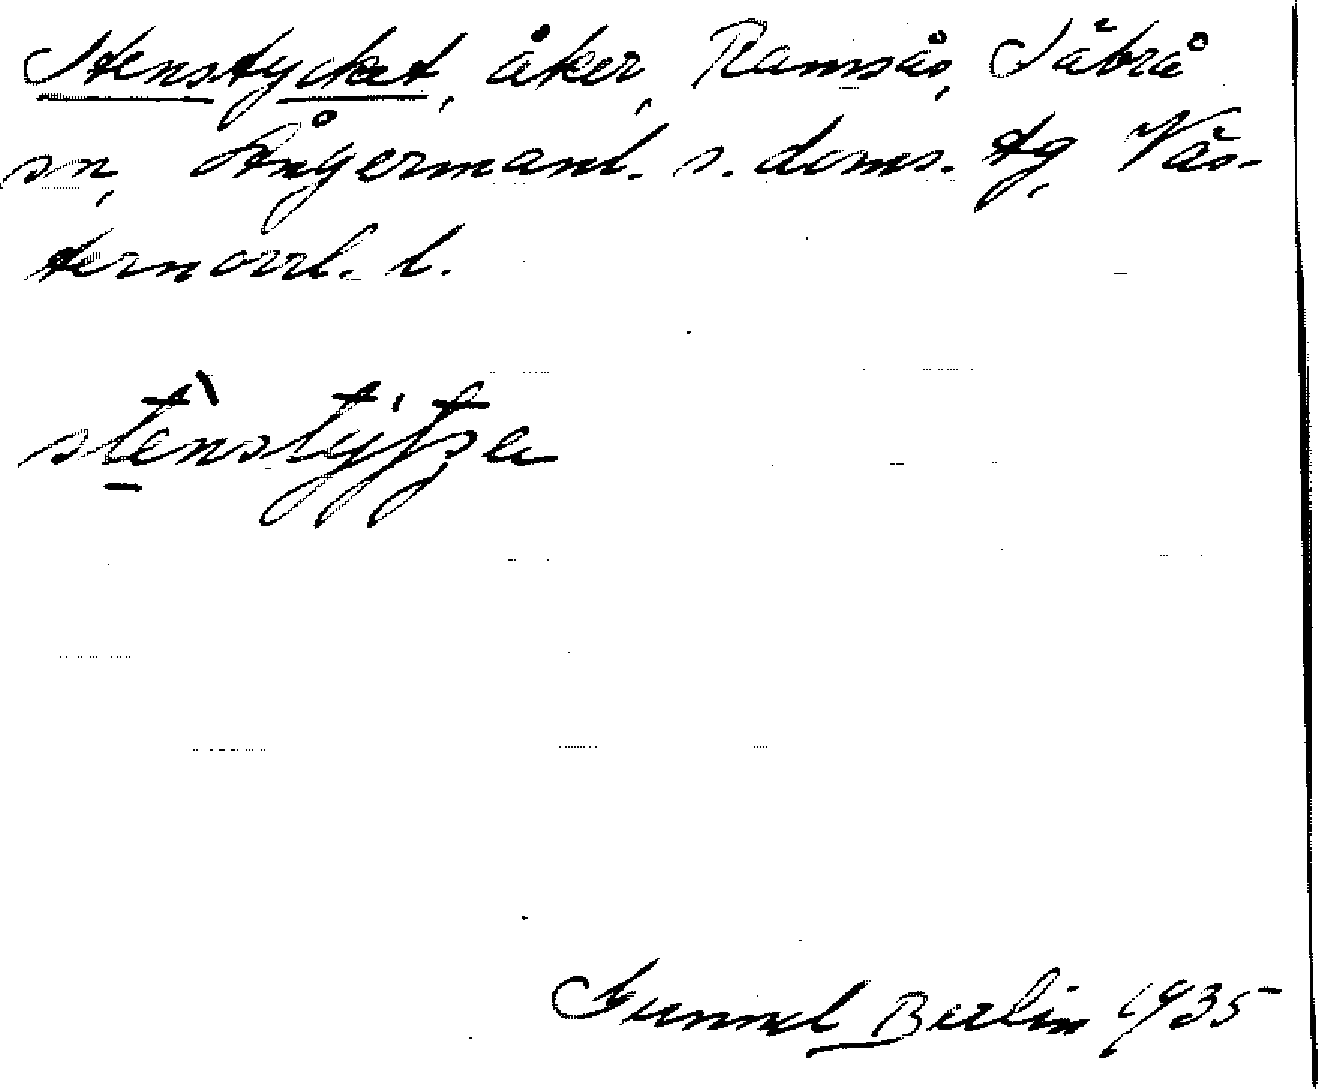 Stenstycket, åker, Ramsås, Säbrå
sn, Ångermanl. s. doms. tg, Väs-
ternorrl. l.
Gunnel Berlin 1935